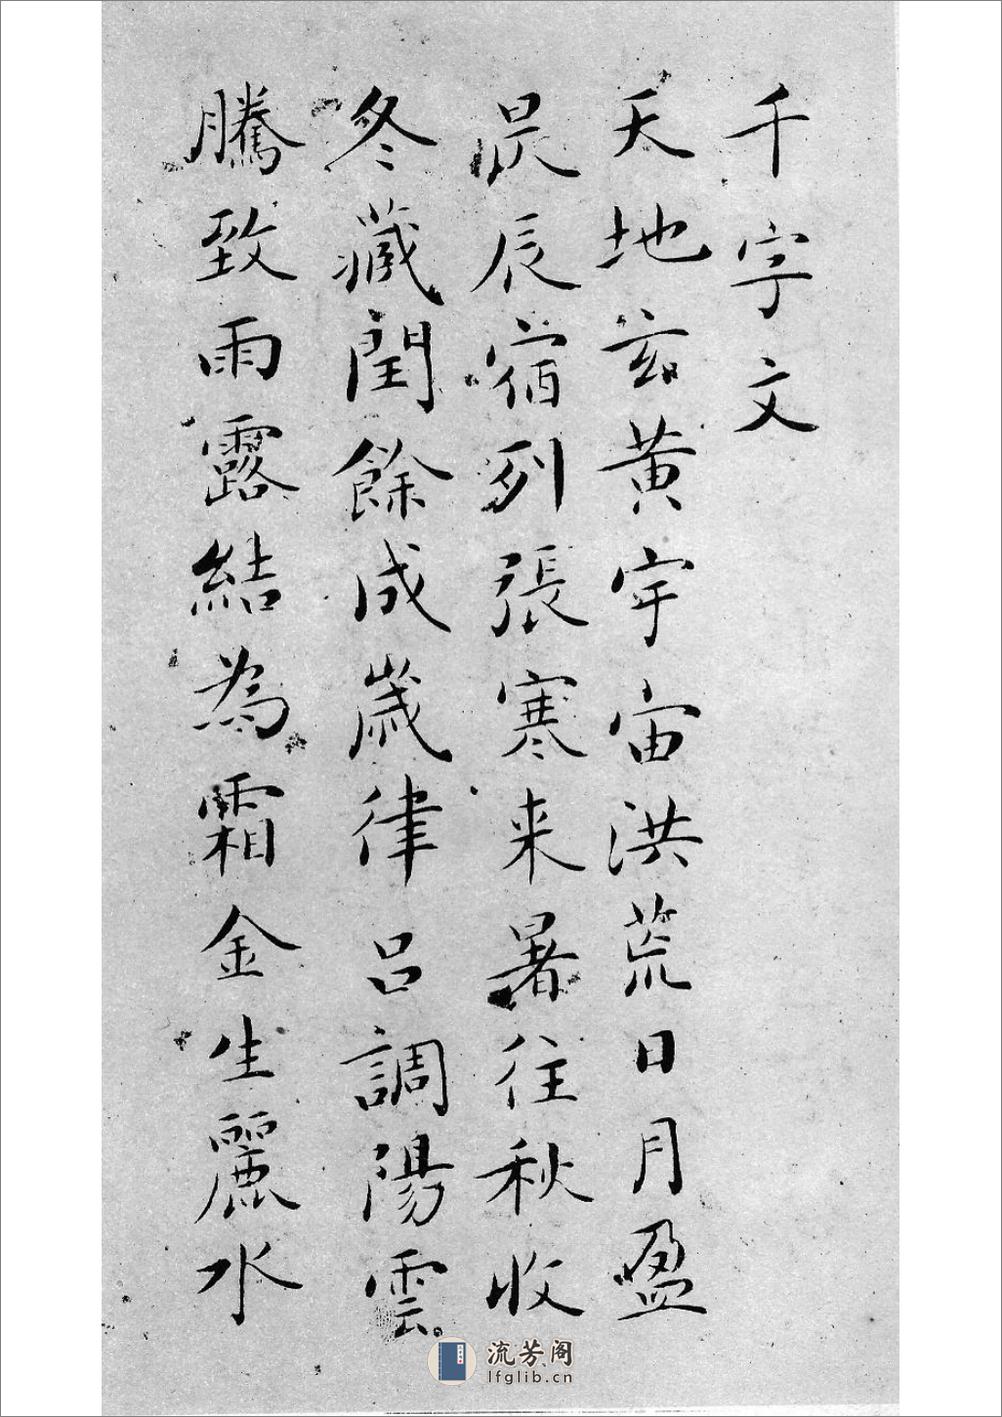 千字文
天地玄黄宇宙洪荒日月盈
昃辰宿列張寒来暑往秋收
冬藏閏餘成歲律呂調陽雲
騰致雨露結為霜金生麗水
流芳阁
lfglib.cn